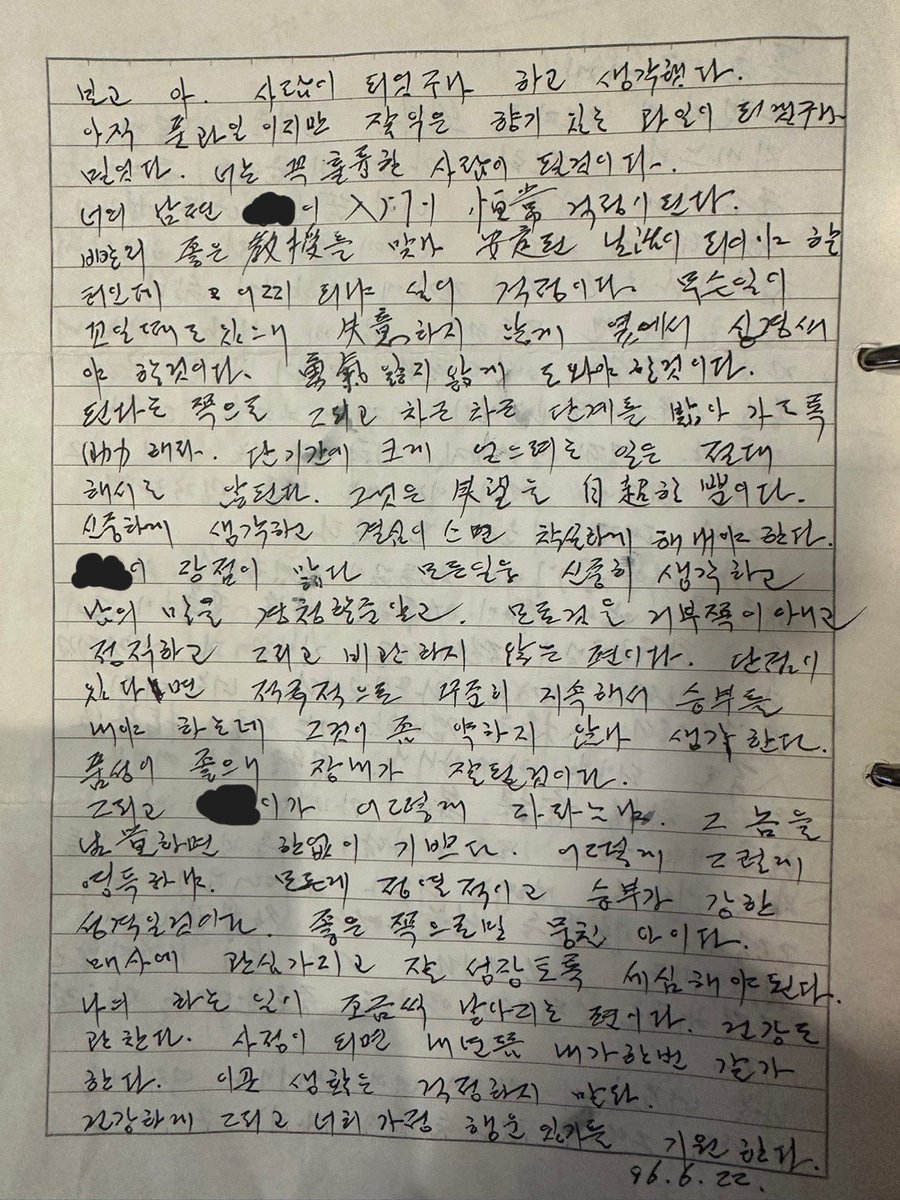 보고 아. 사람이 되었구나 하고 생각했다.
아직 풋과일 이지만 잘익은 향기 있는 과일이 되겠구나
믿었다. 너는 꼭 훌륭한 사람이 될것이다.
너의 남편 이 入门이 恒常 걱정이된다.
빨리 좋은 敎授를 맞나 安定된 날 이 되어야 할
터인데 어찌 되나 싶어 걱정이다. 무슨일이
꼬일때도 있으니 失意하지 않게 옆에서 신경써
야 할것이다. 勇氣잃지 않게 도와야 할것이다.
된다는 쪽으로 그리고 차근 차근 단계를 밟아 가도록
助力해라. 단기간에 크게 얻으려는 일은 절대
해서도 않된다. 그것은 失望을 自超할 뿐이다.
신중하게 생각하고 결심이 스면 착실하게 해 내야 한다.
이 장점이 많다 모든일을 신중히 생각하고
남의 말을 경청할줄 알고. 모든것을 거부쪽이 아니고
정직하고 그리고 비관하지 않는 편이다. 단점이
있다면 적극적으로 꾸준히 지속해서 승부를
내야 하는데 그것이 좀 약하지 않나 생각한다.
품성이 좋으니 장내가 잘될것이다.
그리고 이가 어떻게 자라는냐. 그 놈을
生覺하면 한없이 기쁘다. 어떻게 그렇게
영특하냐. 모든게 정열적이고 승부가 강한
성격일것이다. 좋은 쪽으로만 뭉친 아이다.
매사에 관심가지고 잘 성장토록 세심해야 된다.
나의 하는 일이 조금씩 날아지는 편이다. 건강도
괜찬다. 사정이 되면 내년쯤 내가한번 갈가
한다. 이곳 생활은 걱정하지 말라.
건강하게 그리고 너희 가정 행운 있기를 기원 한다.
96. 6. 22.